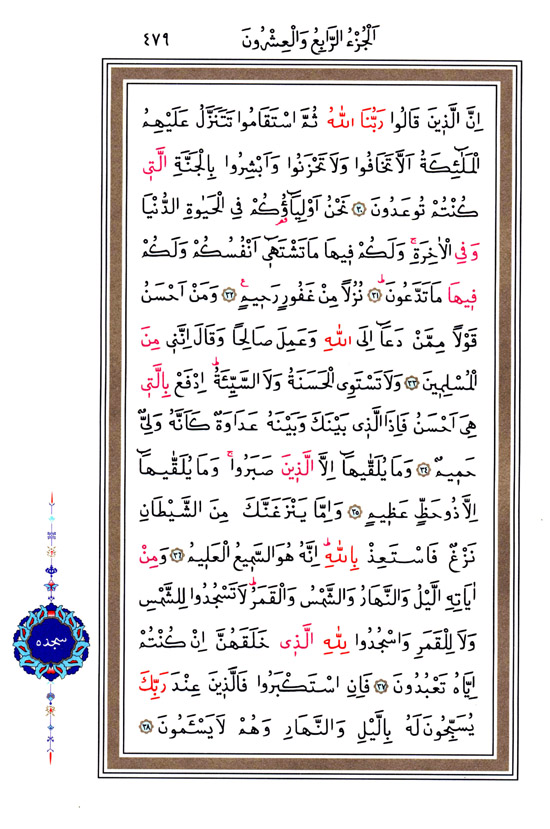 اَلْجُزْءُ الرَّابِعُ وَالْعِشْرُونَ ٤٧٩
اِنَّ الَّذ۪ينَ قَالُوا رَبُّنَا اللّٰهُ ثُمَّ اسْتَقَامُوا تَتَنَزَّلُ عَلَيْهِمُ
الْمَلٰٓئِكَةُ اَلَّا تَخَافُوا وَلَا تَحْزَنُوا وَاَبْشِرُوا بِالْجَنَّةِ الَّت۪ي
كُنْتُمْ تُوعَدُونَ ﴿٣٠﴾ نَحْنُ اَوْلِيَٓاؤُ۬كُمْ فِي الْحَيٰوةِ الدُّنْيَا
وَفِي الْاٰخِرَةِۚ وَلَكُمْ ف۪يهَا مَا تَشْتَه۪ٓي اَنْفُسُكُمْ وَلَكُمْ
ف۪يهَا مَا تَدَّعُونَۜ ﴿٣١﴾ نُزُلًا مِنْ غَفُورٍ رَح۪يمٍ۟ ﴿٣٢﴾ وَمَنْ اَحْسَنُ
قَوْلًا مِمَّنْ دَعَٓا اِلَى اللّٰهِ وَعَمِلَ صَالِحًا وَقَالَ اِنَّن۪ي مِنَ
الْمُسْلِم۪ينَ ﴿٣٣﴾ وَلَا تَسْتَوِي الْحَسَنَةُ وَلَا السَّيِّئَةُۜ اِدْفَعْ بِالَّت۪ي
هِيَ اَحْسَنُ فَاِذَا الَّذ۪ي بَيْنَكَ وَبَيْنَهُ عَدَاوَةٌ كَاَنَّهُ وَلِيٌّ
حَم۪يمٌ ﴿٣٤﴾ وَمَا يُلَقّٰيهَٓا اِلَّا الَّذ۪ينَ صَبَرُواۚ وَمَا يُلَقّٰيهَٓا
اِلَّا ذُو حَظٍّ عَظ۪يمٍ ﴿٣٥﴾ وَاِمَّا يَنْزَغَنَّكَ مِنَ الشَّيْطَانِ
نَزْغٌ فَاسْتَعِذْ بِاللّٰهِۜ اِنَّهُ هُوَ السَّم۪يعُ الْعَل۪يمُ ﴿٣٦﴾ وَمِنْ
اٰيَاتِهِ الَّيْلُ وَالنَّهَارُ وَالشَّمْسُ وَالْقَمَرُۜ لَا تَسْجُدُوا لِلشَّمْسِ
وَلَا لِلْقَمَرِ وَاسْجُدُوا لِلّٰهِ الَّذ۪ي خَلَقَهُنَّ اِنْ كُنْتُمْ
اِيَّاهُ تَعْبُدُونَ ﴿٣٧﴾ فَاِنِ اسْتَكْبَرُوا فَالَّذ۪ينَ عِنْدَ رَبِّكَ
يُسَبِّحُونَ لَهُ بِالَّيْلِ وَالنَّهَارِ وَهُمْ لَا يَسْـَٔمُونَ ﴿٣٨﴾
سجده